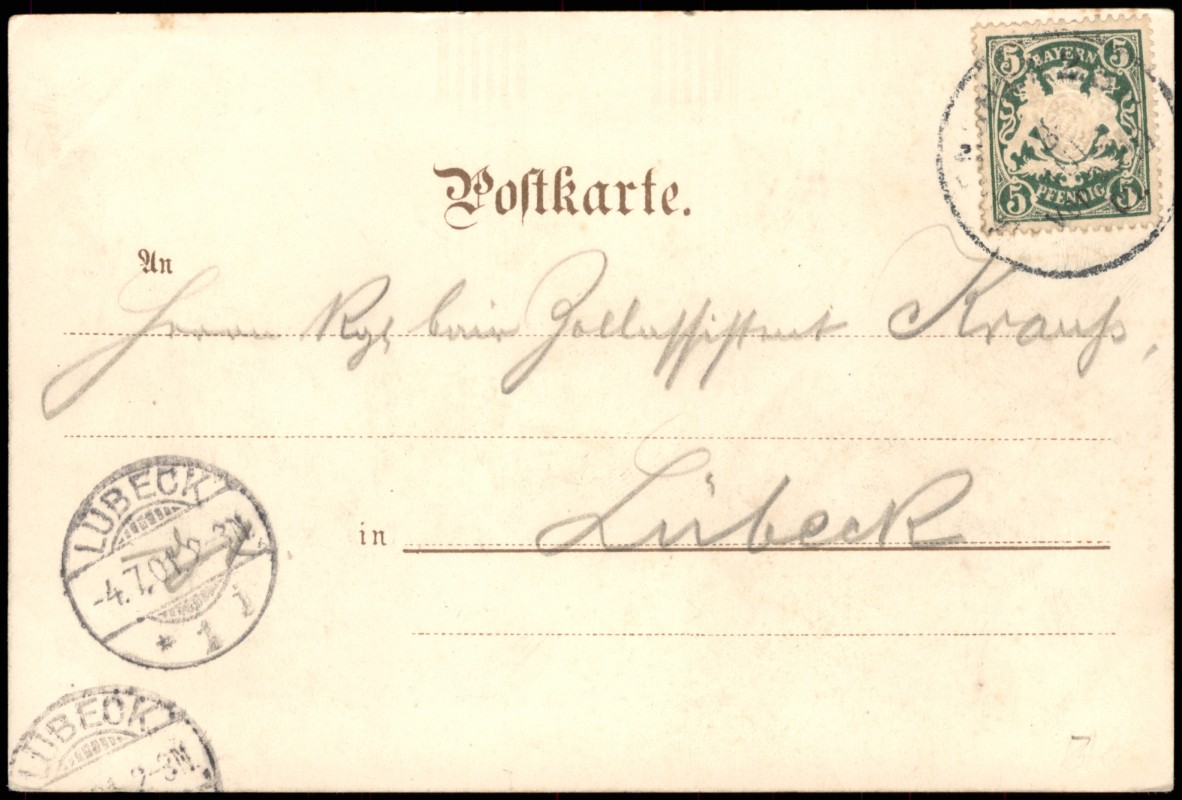 5 BAYERN 5
5 PFENNIG 5
Postkarte.
An
Herrn Kgl bair Zollassistent Krauß,
in Lübeck
LÜBECK
-4.7.01 2-3N
* 1 j
LÜBECK
2-3N